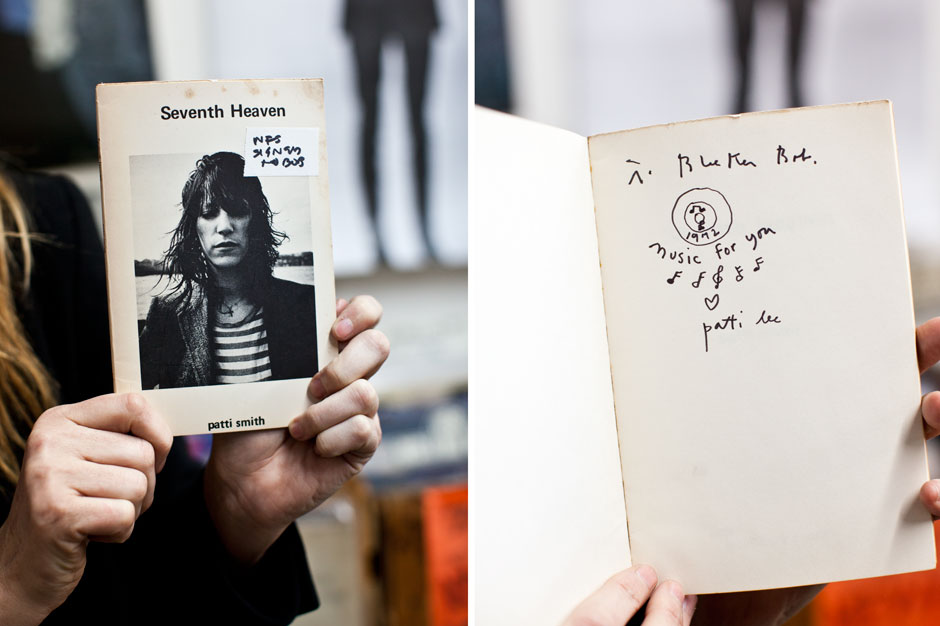 Seventh Heaven
NFS
SIGNED
TO BOB
patti smith
to. Bleecker Bob.
1972
music for you
patti lee